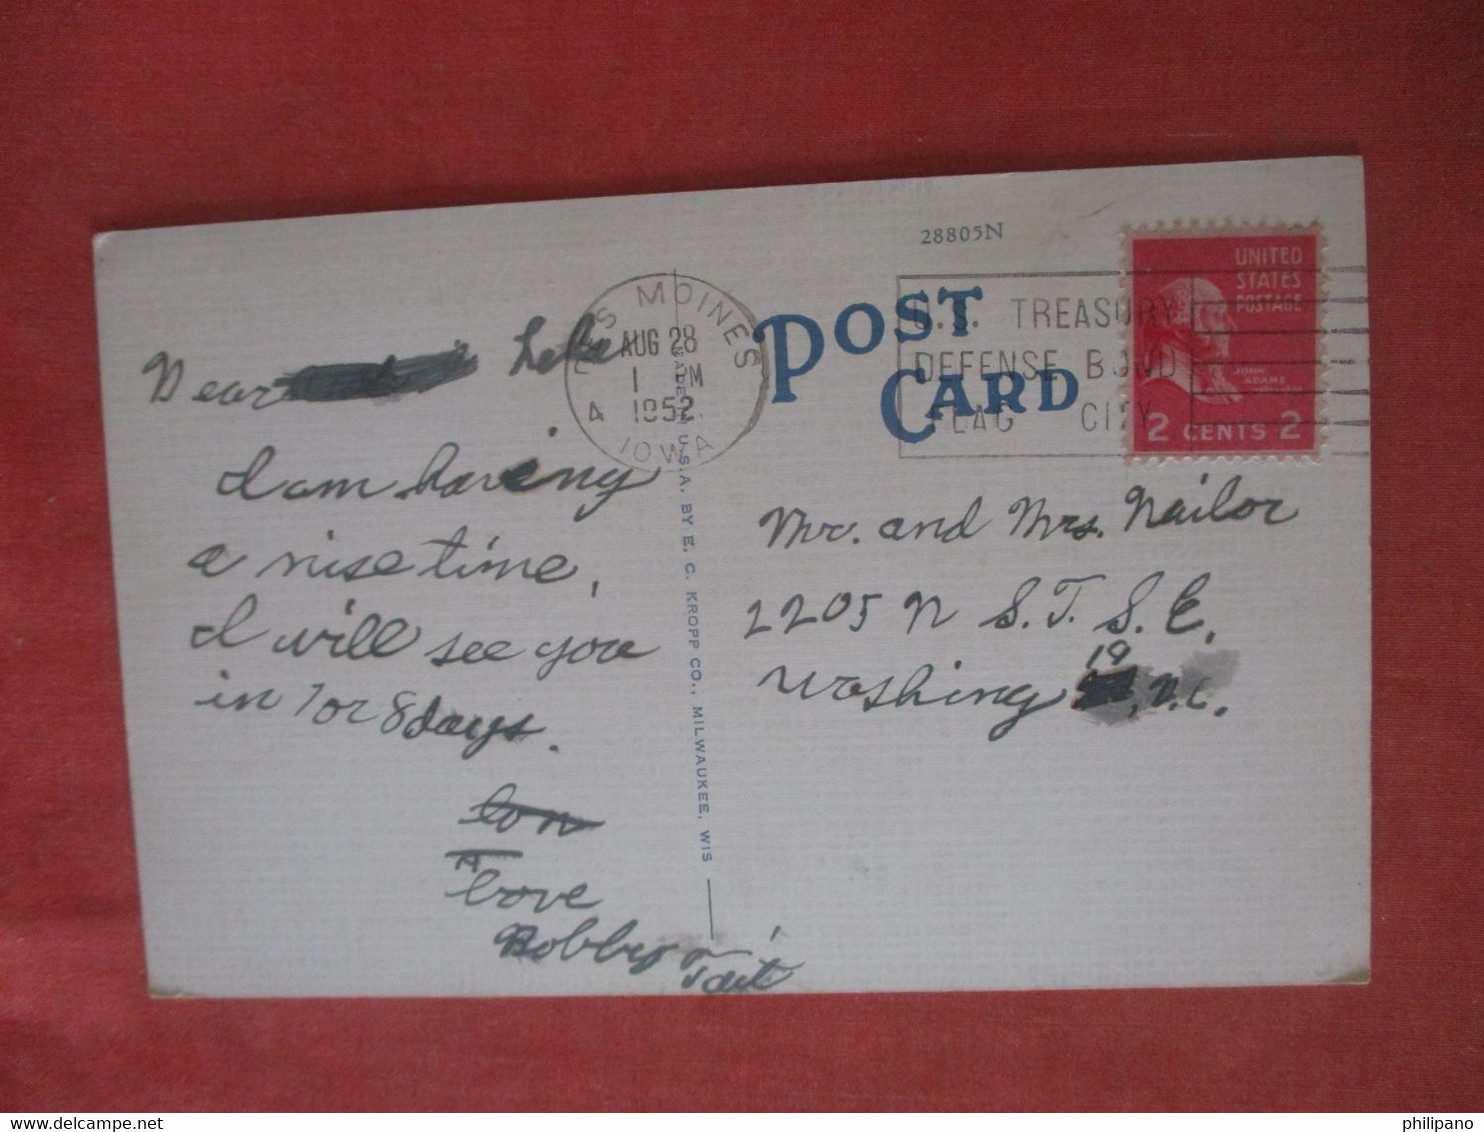 28805N
DES MOINES
AUG 28
1 PM
4 1952
IOWA
U.S. TREASURY
DEFENSE BOND
FLAG CITY
UNITED
STATES
POSTAGE
JOHN
ADAMS
2 CENTS 2
POST
CARD
MADE IN U.S.A. BY E. C. KROPP CO., MILWAUKEE, WIS
Dear
I am having
a nise time,
I will see you
in 7 or 8 days.
Love
Bobby
Mr. and Mrs. Nailor
2205 N S.T. S.E.
19
Washing , D.C.
philipano
delcampe.net